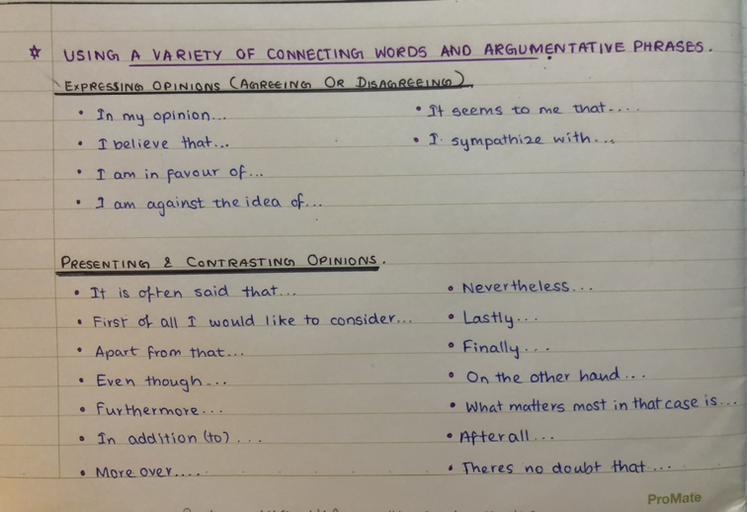 ☆ USING A VARIETY OF CONNECTING WORDS AND ARGUMENTATIVE PHRASES.
EXPRESSING OPINIONS (AGREEING OR DISAGREEING)
• In my opinion...
• I believe that...
• I am in favour of...
• I am against the idea of...
• It seems to me that....
• I sympathize with...
PRESENTING & CONTRASTING OPINIONS.
• It is often said that...
• First of all I would like to consider...
• Apart from that...
• Even though...
• Furthermore...
• In addition (to)...
• More over....
• Nevertheless...
• Lastly...
• Finally...
• On the other hand...
• What matters most in that case is...
• After all...
• Theres no doubt that...
ProMate